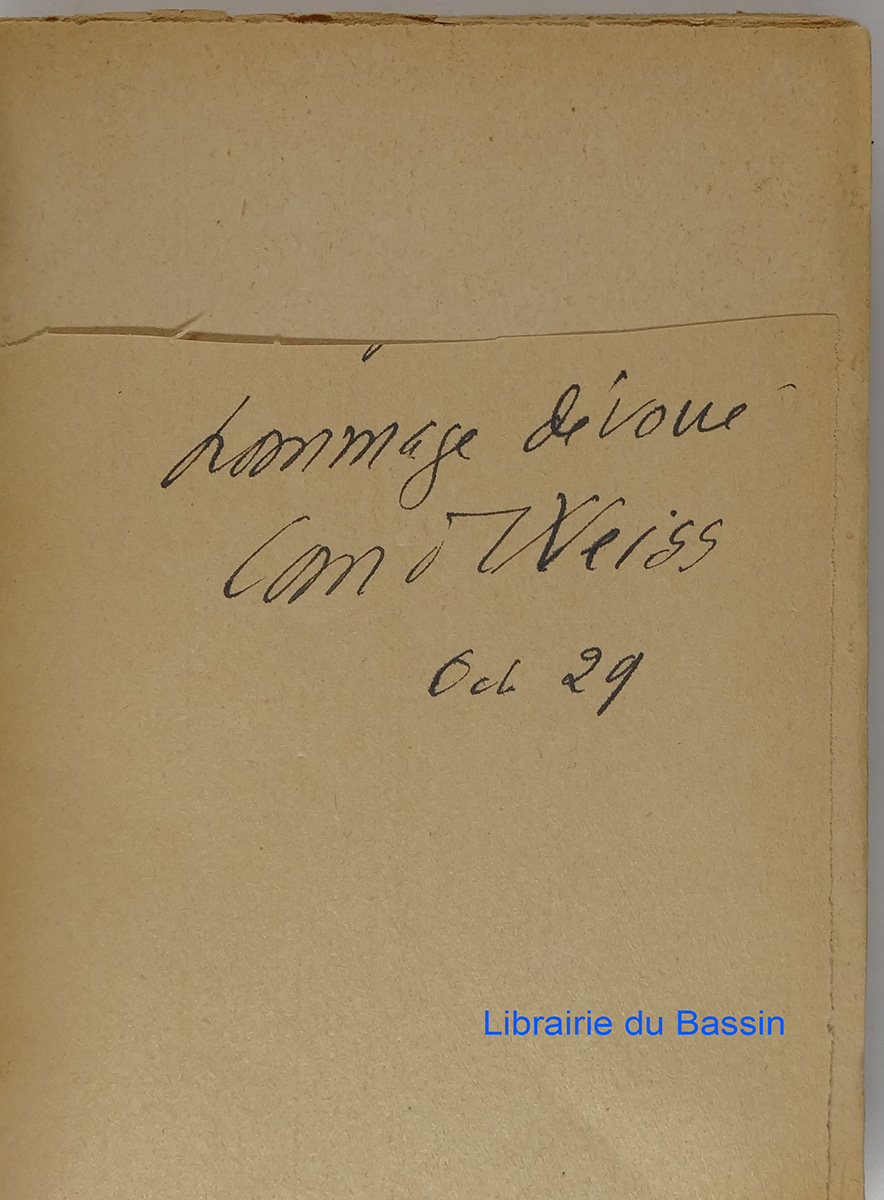 hommage dévoué
Comd Weiss
Oct 29
Librairie du Bassin